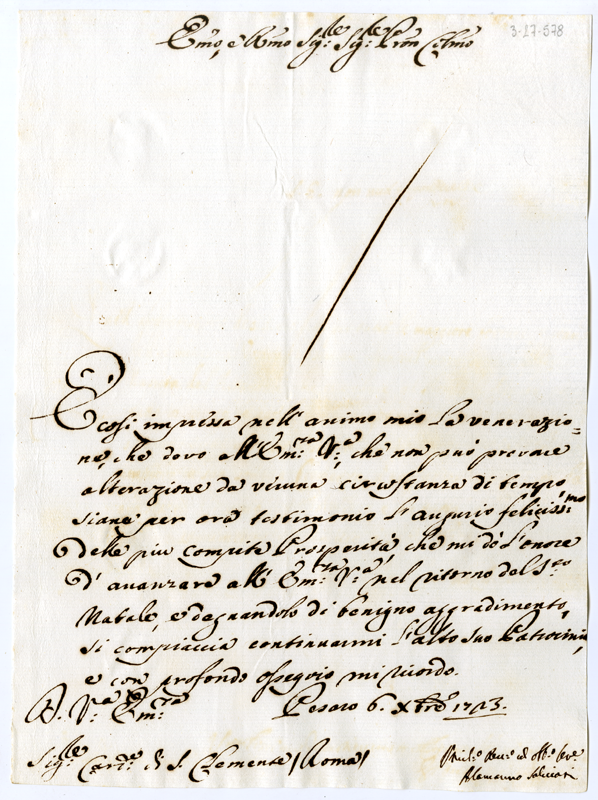 Em̃o, e Rm̃o Sig:re Sig:re Pron Colmo
3-27-578
È così impressa nell'animo mio la venerazio=
ne, che devo all'Em:za V:a, che non può provare
alterazione da veruna circostanza di tempo
siane per ora testimonio l'augurio feliciss:mo
delle più compite Prosperità che mi dò l'onore
d'avanzare all'Em:za V:a nel ritorno del S:to
Natale, e degnandolo di benigno aggradimento,
si compiaccia continuarmi l'alto suo Patrocinio,
e con profondo ossequio mi ricordo.
D. V:a Em:za Pesaro 6. Xbre 1723.
Sig:re Card:e di S. Clemente (Roma)
Alamanno Salviati